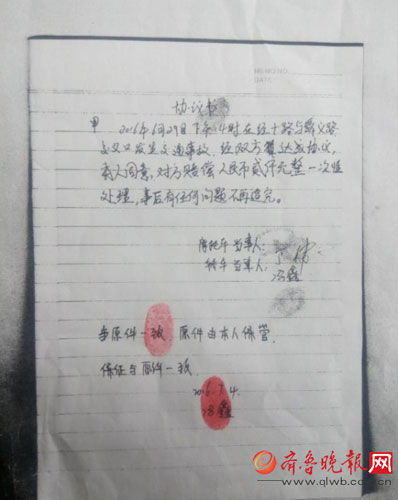 协议书
甲 2016年6月29日下午4时在经十路与舜义路
交叉口发生交通事故，经双方达成协议，
本人同意，对方赔偿人民币贰仟元整一次性
处理，事后有任何问题不再追究。
摩托车当事人：
轿车当事人：冯鑫
与原件一致 原件由本人保管.
保证与原件一致.
2016.7.4.
冯鑫
齐鲁晚报网
www.qlwb.com.cn